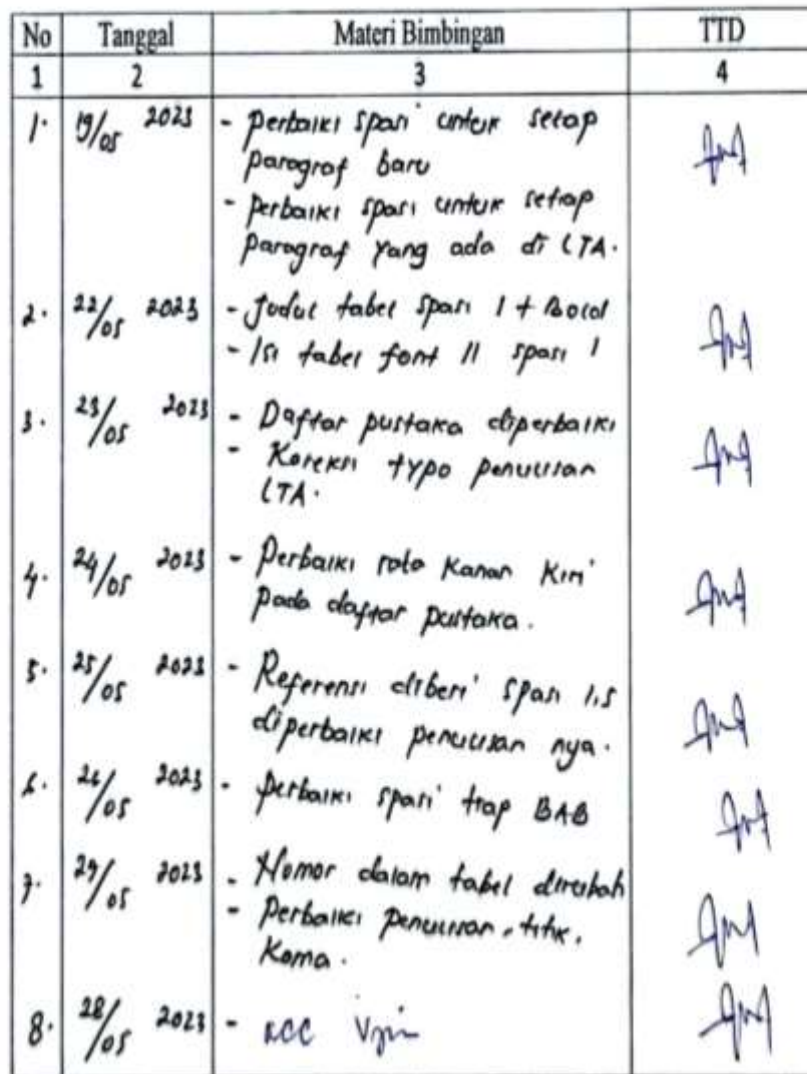 No Tanggal Materi Bimbingan TTD
1 2 3 4
1. 19/05 2023 - perbaiki spasi untuk setiap
paragraf baru
- perbaiki spasi untuk setiap
paragraf yang ada di LTA.
2. 22/05 2023 - Judul tabel spasi 1 + Bold
- Isi tabel font 11 spasi 1
3. 23/05 2023 - Daftar pustaka diperbaiki
- Koreksi typo penulisan
LTA.
4. 24/05 2023 - Perbaiki rata kanan kiri
pada daftar pustaka.
5. 25/05 2023 - Referensi diberi spasi 1,5
diperbaiki penulisan nya.
6. 26/05 2023 - perbaiki spasi tiap BAB
7. 27/05 2023 - Nomor dalam tabel dirubah
- Perbaiki penulisan, titik,
Koma.
8. 28/05 2023 - ACC